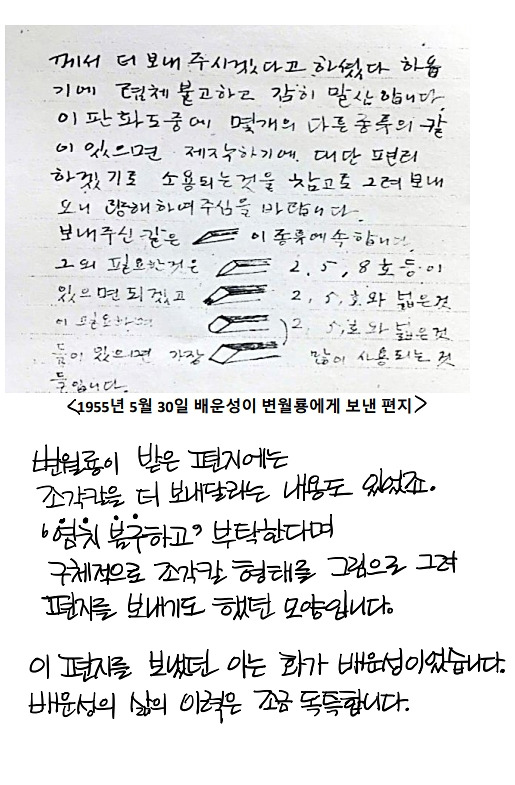 께서 더 보내 주시겠다고 하셨다 하옵
기에 렴체 불고하고 감히 말산입니다
이 판화도중에 몇개의 다른 종류의 칼
이 있으면 제작하기에 대단 편리
하겠기로 소용되는것을 참고로 그려 보내
오니 량해하여주심을 바랍니다.
보내주신 칼은 이 종류에 속합니다.
그외 필요한것은 2, 5, 8호 등이
있으면 되겠고 2, 5,호와 넓은것
이 필요하며 2, 5,호와 넓은것
들이 있으면 가장 많이 사용되는 것
들입니다.
<1955년 5월 30일 배운성이 변월룡에게 보낸 편지>
변월룡이 받은 편지에는
조각칼을 더 보내달라는 내용도 있었죠.
'염치 불구하고' 부탁한다며
구체적으로 조각칼 형태를 그림으로 그려
편지를 보내기도 했던 모양입니다.
이 편지를 보냈던 이는 화가 배운성이었습니다.
배운성의 삶의 이력은 조금 독특합니다.